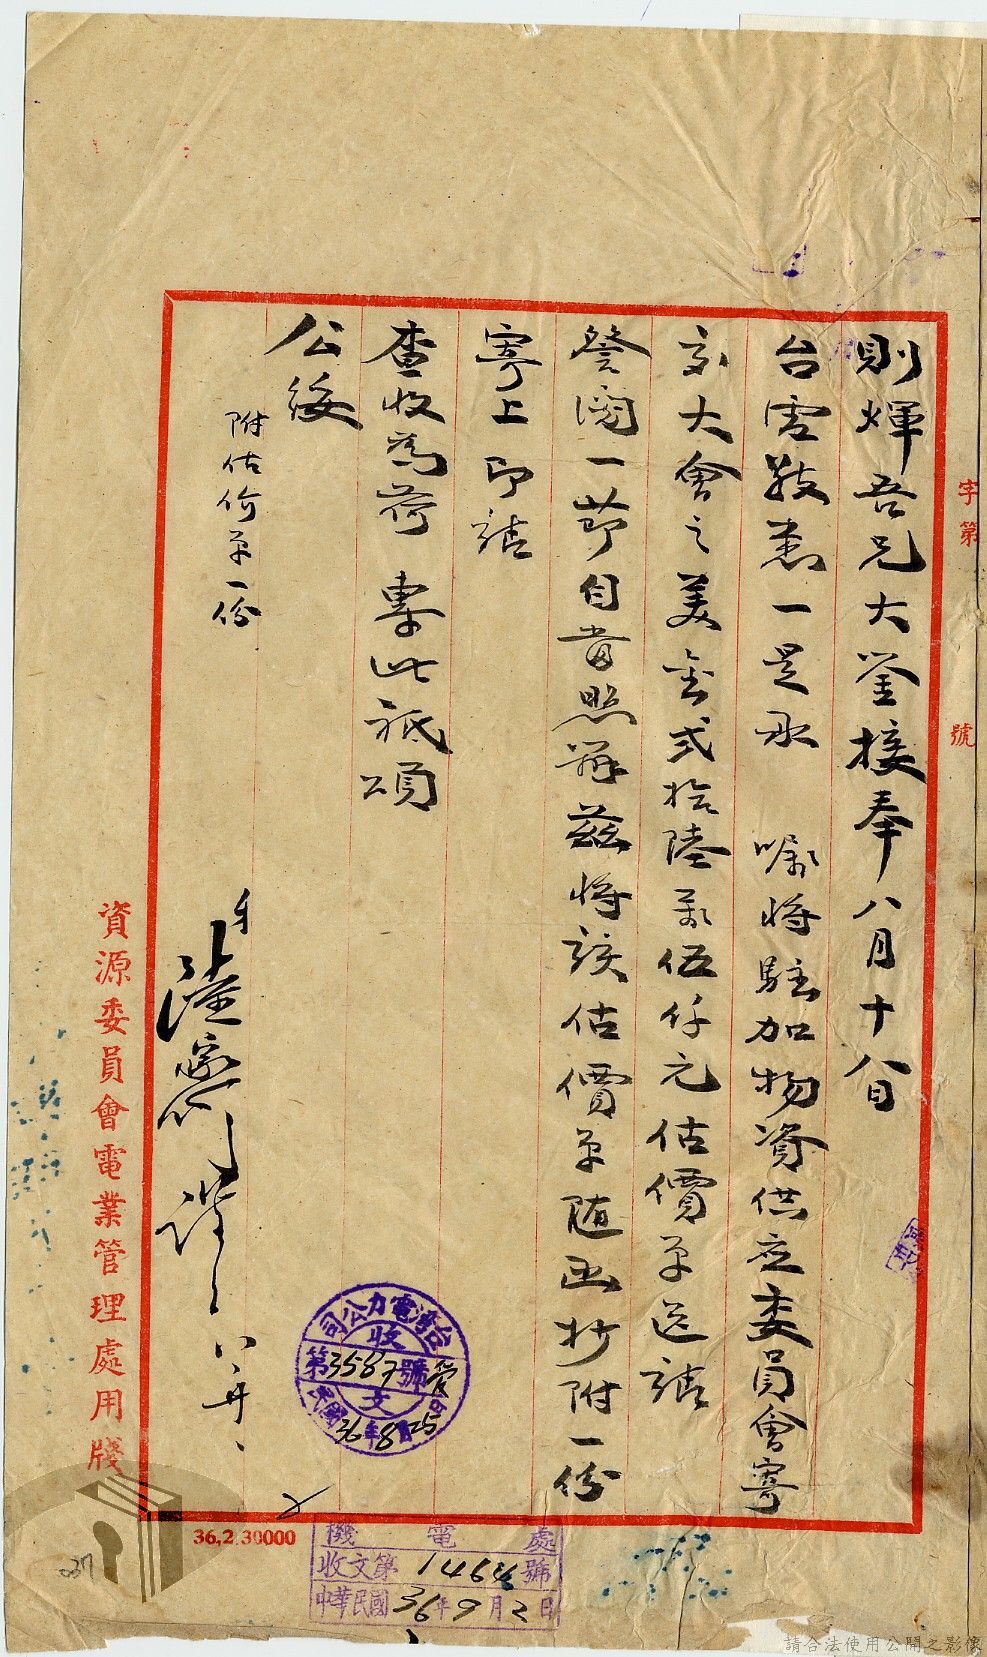 字第
號
則煇吾兄大鉴接奉八月十八日
台電敬悉一是承 嘱將駐加物資供应委員會寄
交大會之美金弍拾陸萬伍仟元估價單送請
詧閱一節自當照辦茲將該估價單随函抄附一份
寄上即請
查收為荷 專此祗頌
公綏
附估价單一份
弟陸
八、廿、
資源委員會電業管理處用牋
台灣電力公司
收文
第3587號
民國36年8月25日
36,2,30000
機電處
收文第1464號
中華民國36年9月2日
037
請合法使用公開之影像